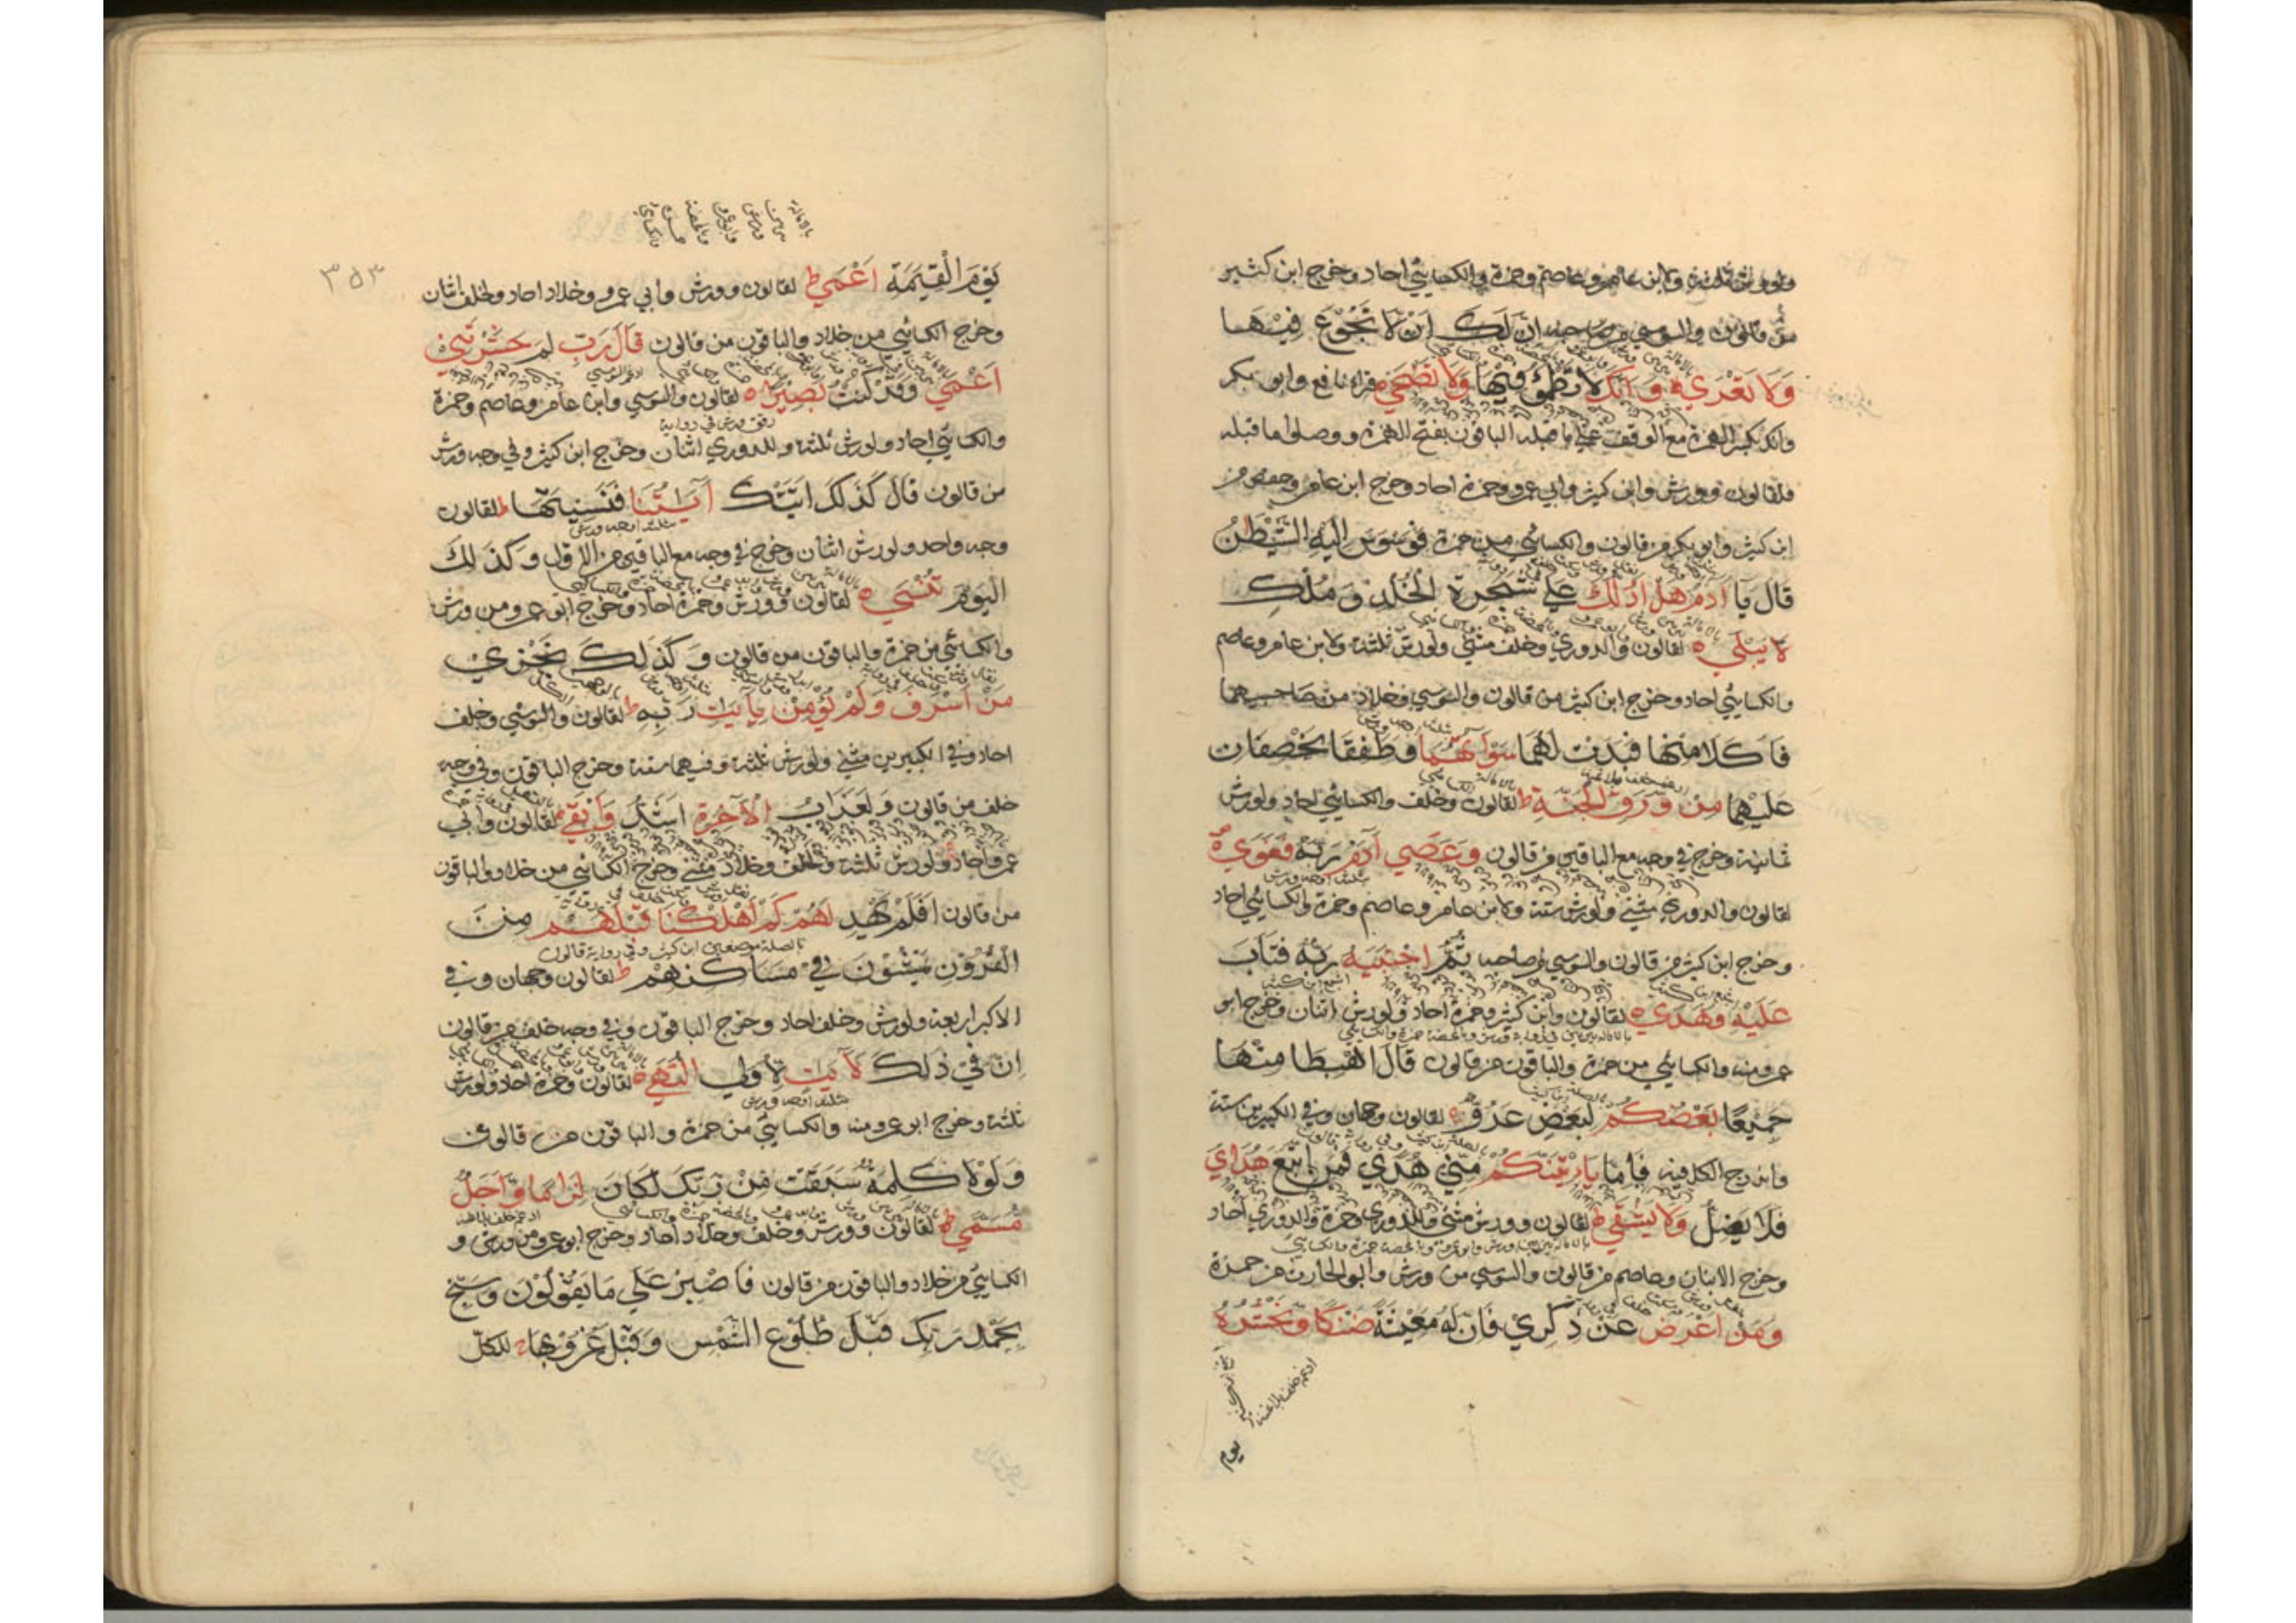 ولورش ثلثة ولابن عامر وعاصم وحمزة والكسائي احاد وخرج ابن كثير
من قالون والسوسي من صاحبه اِنَّ لَكَ اَنْ لَا تَجُوْعَ فِيْهَا
وَلَا تَعْرٰي وَاَنَّكَ لَا تَظْمَؤُ فِيْهَا وَلَا تَضْحٰي قراء نافع وابو بكر
وانك بكسر الهمزة مع الوقف علي ما قبله الباقون بفتح الهمزة ووصلوا ما قبله
فلقالون وورش وابن كثير وابي عمرو وحمزة احاد وخرج ابن عامر وحفص من
ابن كثير وابو بكر من قالون والكسائي من حمزة فَوَسْوَسَ اِلَيْهِ الشَّيْطٰنُ
قَالَ يَا اٰدَمُ هَلْ اَدُلُّكَ عَلٰي شَجَرَةِ الْخُلْدِ وَمُلْكٍ
لَا يَبْلٰي لقالون والدوري وخلف مثني ولورش ثلثة ولابن عامر وعاصم
والكسائي احاد وخرج ابن كثير من قالون والسوسي وخلاد من صاحبيهما
فَاَكَلَا مِنْهَا فَبَدَتْ لَهُمَا سَوْاٰتُهُمَا وَطَفِقَا يَخْصِفَانِ
عَلَيْهِمَا مِنْ وَّرَقِ الْجَنَّةِ ط لقالون وخلف والكسائي احاد ولورش
ثمانية وخرج في وجه مع الباقين من قالون وَعَصٰي اٰدَمُ رَبَّهُ فَغَوٰي
لقالون والدوري مثني ولورش ستة ولابن عامر وعاصم وحمزة والكسائي احاد
وخرج ابن كثير من قالون والسوسي من صاحبه ثُمَّ اجْتَبٰيهُ رَبُّهُ فَتَابَ
عَلَيْهِ وَهَدٰي لقالون وابن كثير وحمزة احاد ولورش اثنان وخرج ابو
عمرو منه والكسائي من حمزة والباقون من قالون قَالَ اهْبِطَا مِنْهَا
جَمِيْعًا بَعْضُكُمْ لِبَعْضٍ عَدُوٌّ لقالون وجهان وفي الكبيرين ستة
واندرج الكل فيه فَاِمَّا يَاْتِيَنَّكُمْ مِّنِّي هُدًي فَمَنِ اتَّبَعَ هُدَايَ
فَلَا يَضِلُّ وَلَا يَشْقٰي ط لقالون وورش مثني وللدوري وحمزة والدوري احاد
وخرج الابنان وعاصم من قالون والسوسي من ورش وابو الحارث من حمزة
وَمَنْ اَعْرَضَ عَنْ ذِكْرِيْ فَاِنَّ لَهُ مَعِيْشَةً ضَنْكًا وَّنَحْشُرُهُ
ادغم خلف بلا غنة
يوم
٣٥٣
بالامالة بين بين ورش وابو عمرو وبالمحضة حمزة والكسائي
يَوْمَ الْقِيٰمَةِ اَعْمٰي ط لقالون وورش وابي عمرو وخلاد احاد ولخلف اثنان
وخرج الكسائي من خلاد والباقون من قالون قَالَ رَبِّ لِمَ حَشَرْتَنِيْ
اَعْمٰي وَقَدْ كُنْتُ بَصِيْرًا لقالون والسوسي وابن عامر وعاصم وحمزة
رقق ورش في رواية
والكسائي احاد ولورش ثلثة وللدوري اثنان وخرج ابن كثير وفي وجه ورش
من قالون قَالَ كَذٰلِكَ اَتَتْكَ اٰيٰتُنَا فَنَسِيْتَهَا ط لقالون
ثلثة اوجه ورش
وجه واحد ولورش اثنان وخرج في وجه مع الباقين من الاول وَكَذٰلِكَ
الْيَوْمَ تُنْسٰي لقالون وورش وحمزة احاد وخرج ابو عمرو من ورش
والكسائي من حمزة والباقون من قالون وَكَذٰلِكَ نَجْزِيْ
مَنْ اَسْرَفَ وَلَمْ يُؤْمِنْ بِاٰيٰتِ رَبِّهِ ط لقالون والسوسي وخلف
احاد وفي الكبيرين مثني ولورش ثلثة وفيهما ستة وخرج الباقون وفي وجه
خلف من قالون وَلَعَذَابُ الْاٰخِرَةِ اَشَدُّ وَاَبْقٰي لقالون وابي
عمرو احاد ولورش ثلثة ولخلف وخلاد مثني وخرج الكسائي من خلاد والباقون
من قالون اَفَلَمْ يَهْدِ لَهُمْ كَمْ اَهْلَكْنَا قَبْلَهُمْ مِنَ
بالصلة موضعين ابن كثير وفي رواية قالون
الْقُرُوْنِ يَمْشُوْنَ فِيْ مَسَاكِنِهِمْ ط لقالون وجهان وفي
الاكبر اربعة ولورش وخلف احاد وخرج الباقون وفي وجه خلف من قالون
اِنَّ فِيْ ذٰلِكَ لَاٰيٰتٍ لِّاُولِي النُّهٰي لقالون وحمزة احاد ولورش
ثلثة اوجه ورش
ثلثة وخرج ابو عمرو منه والكسائي من حمزة والباقون من قالون
وَلَوْلَا كَلِمَةٌ سَبَقَتْ مِنْ رَبِّكَ لَكَانَ لِزَامًا وَّاَجَلٌ
مُسَمًّي ط لقالون وورش وخلف وخلاد احاد وخرج ابو عمرو من ورش و
الكسائي من خلاد والباقون من قالون فَاصْبِرْ عَلٰي مَا يَقُوْلُوْنَ وَسَبِّحْ
بِحَمْدِ رَبِّكَ قَبْلَ طُلُوْعِ الشَّمْسِ وَقَبْلَ غُرُوْبِهَا للكل